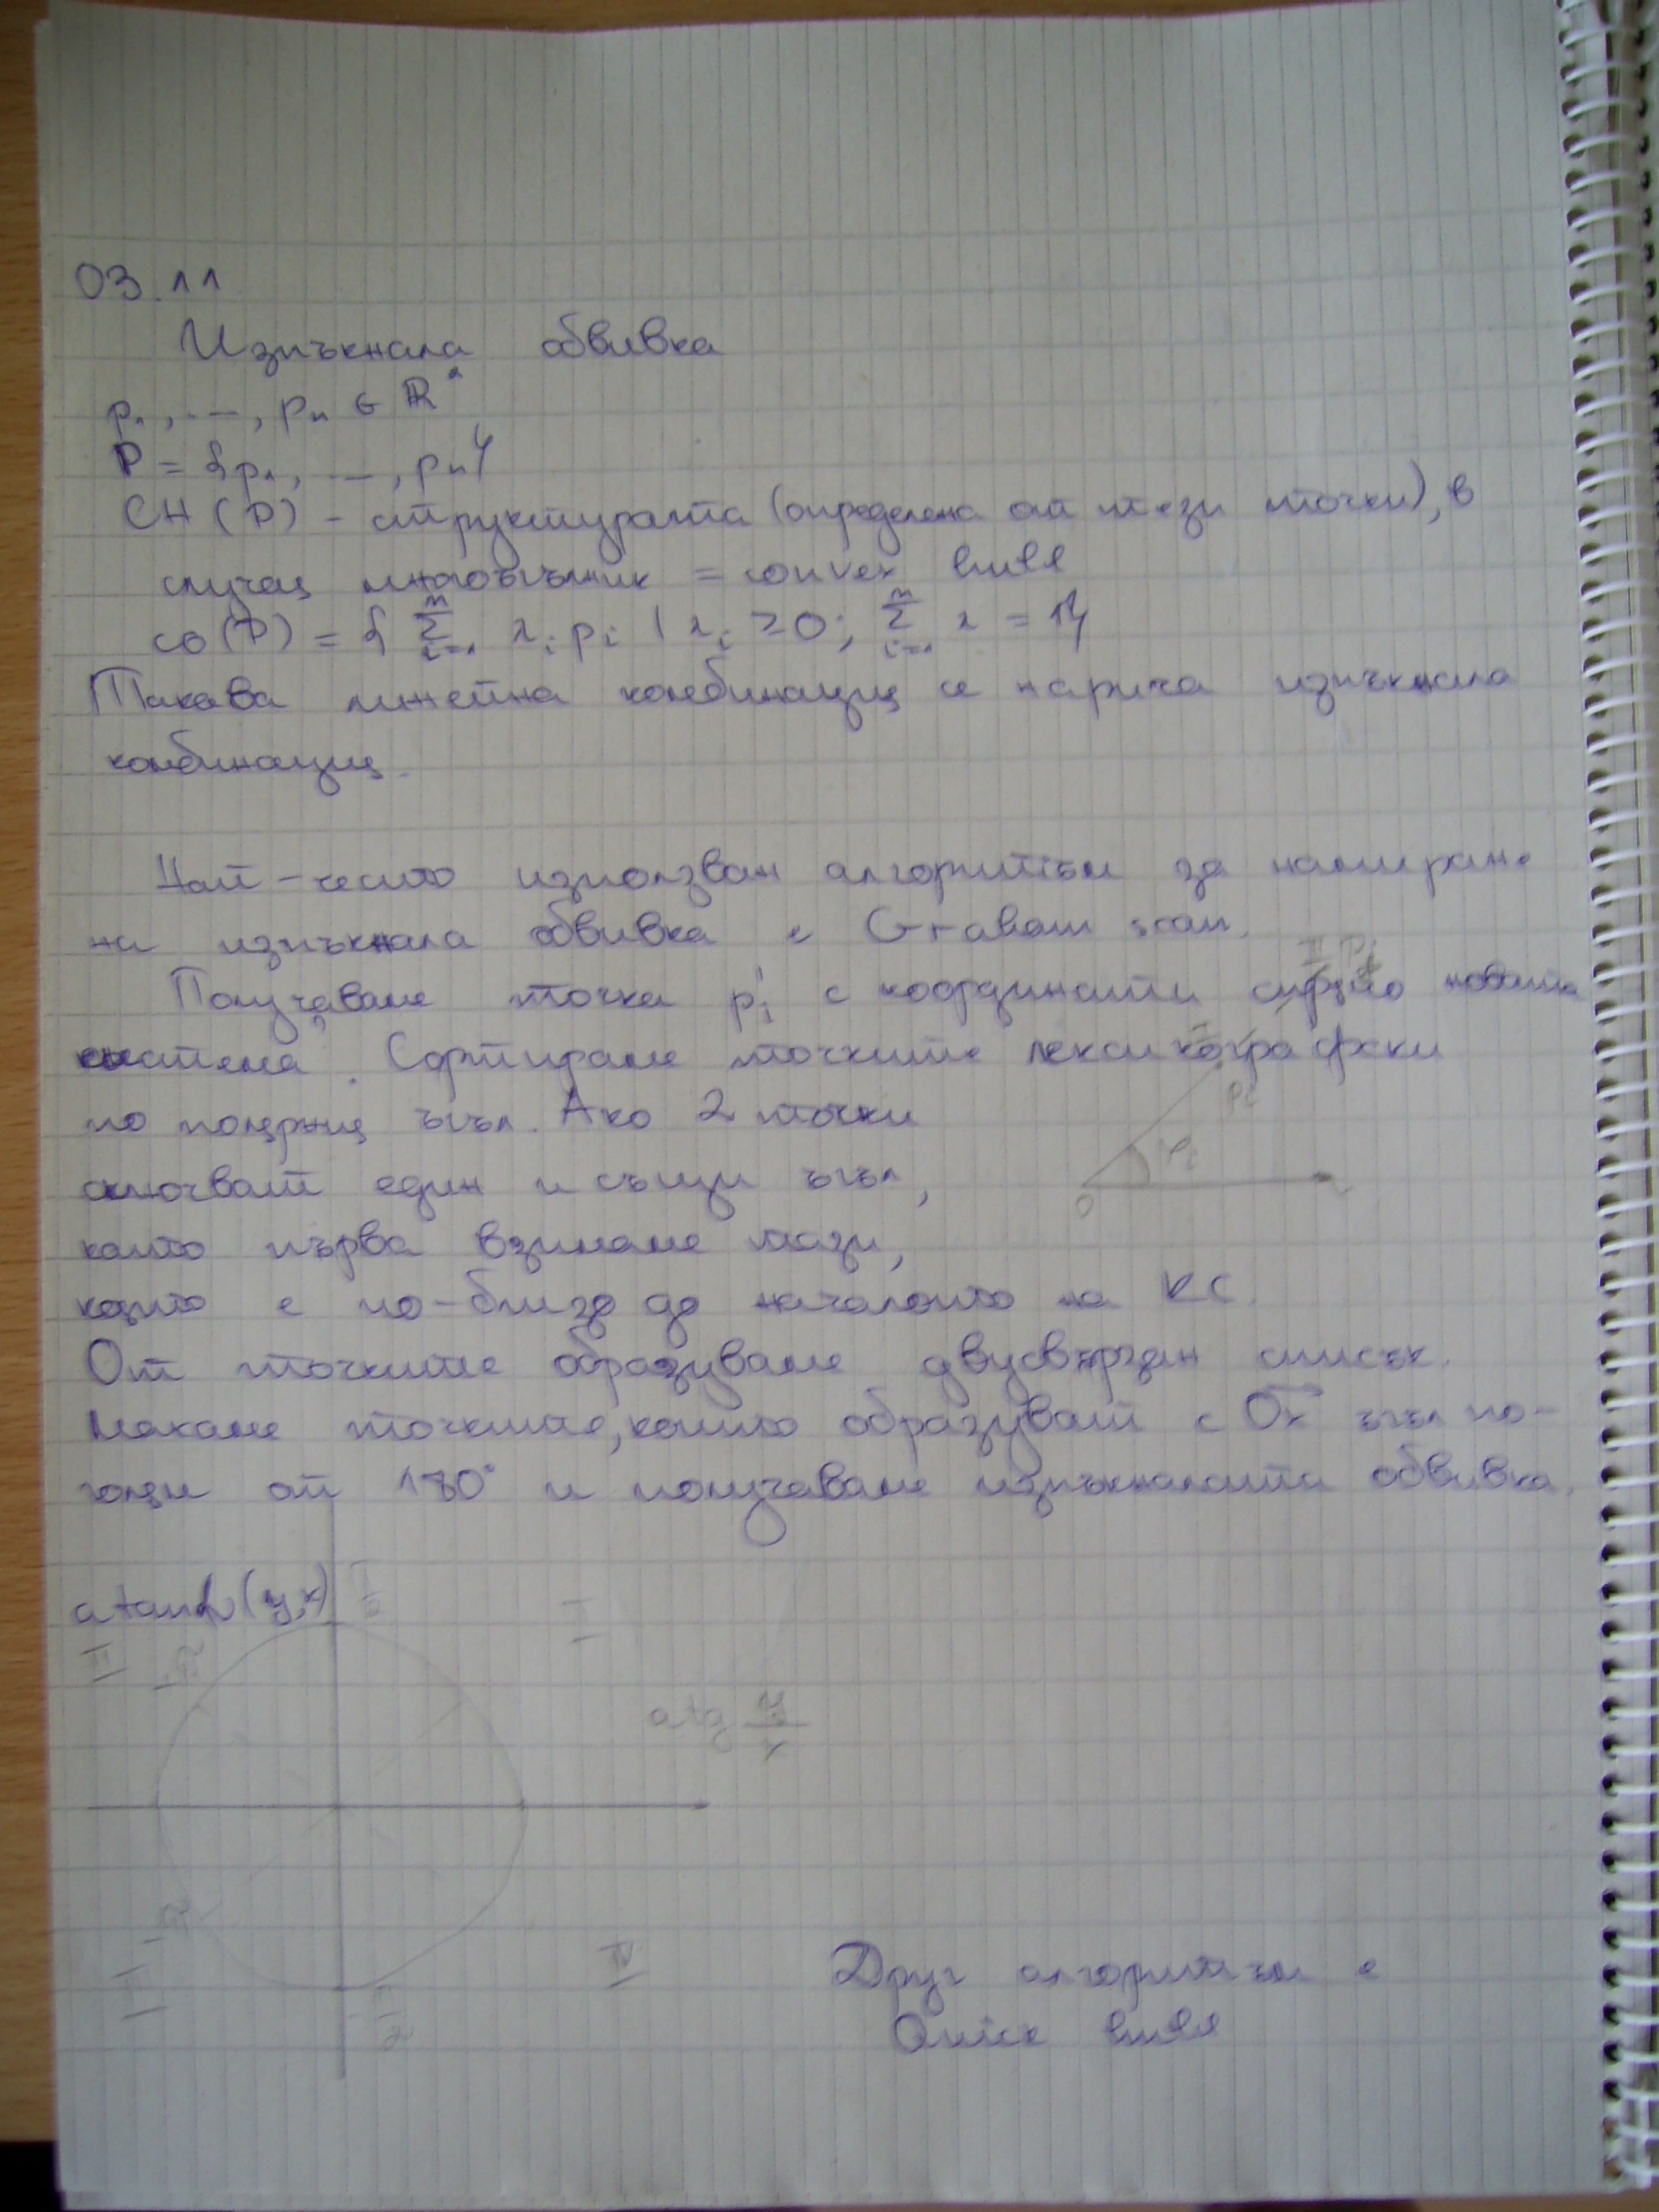 03.11
Изпъкнала обвивка
p₁, ..., pₙ ∈ ℝ²
P = {p₁, ..., pₙ}
CH(P) - структурата (определена от тези точки), в
случая многоъгълник = convex hull
co(P) = { Σᵢ₌₁ⁿ λᵢ pᵢ | λᵢ ≥ 0; Σᵢ₌₁ⁿ λ = 1}
Такава линейна комбинация се нарича изпъкнала
комбинация.
Най-често използван алгоритъм за намиране
на изпъкнала обвивка е Graham scan.
Получаваме точка pᵢ' с координати спрямо новата
система. Сортираме точките лексикографски
по полярния ъгъл. Ако 2 точки
сключват един и същи ъгъл,
като първа взимаме тази,
която е по-близо до началото на КС.
От точките образуваме двусвързан списък.
Махаме точките, които образуват с Ox ъгъл по-
голям от 180° и получаваме изпъкналата обвивка.
pᵢ
φᵢ
O
atan2(y,x)
π/2
I
II
π
arctg y/x
-π
III
-π/2
IV
Друг алгоритъм е
Quick hull